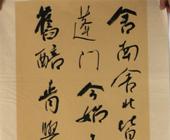 舍南舍北皆
蓬门今始
舊醅肯與